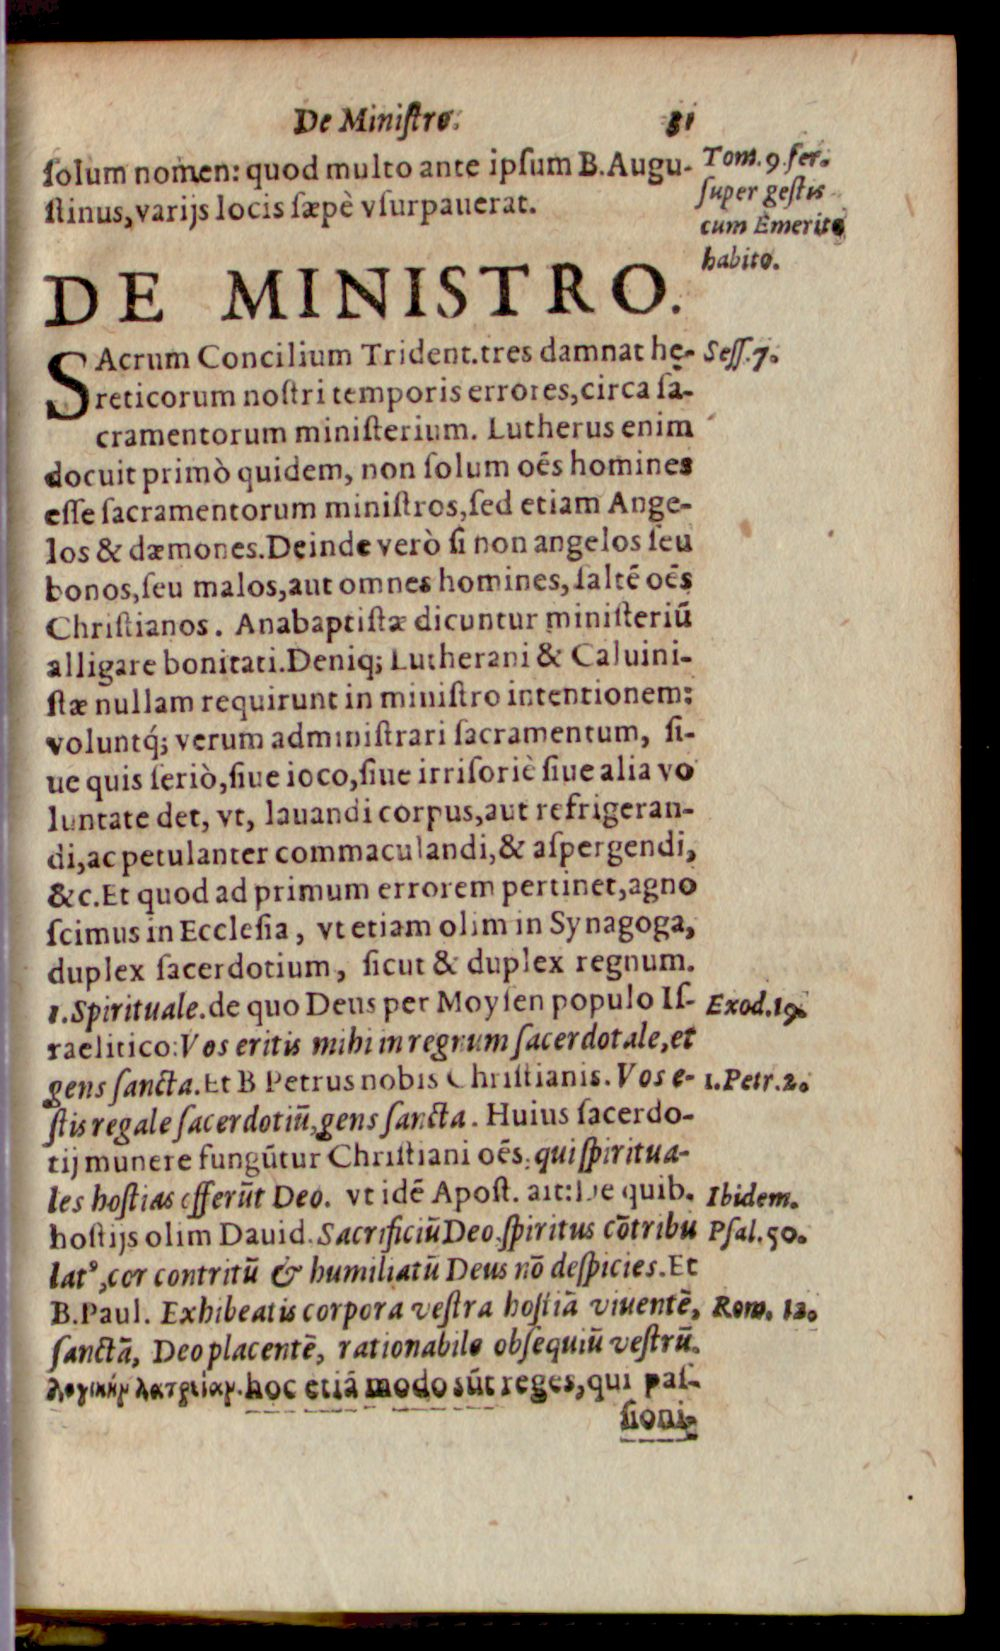 De Ministro. 81
solum nomen: quod multo ante ipsum B. Augu-
stinus, varijs locis sæpè vsurpauerat.
Tom. 9. ser.
super gestis
cum Emerito
habito.
DE MINISTRO.
SAcrum Concilium Trident. tres damnat hę-
Sess. 7.
reticorum nostri temporis errores, circa sa-
cramentorum ministerium. Lutherus enim
docuit primò quidem, non solum oẽs homines
esse sacramentorum ministros, sed etiam Ange-
los & dæmones. Deinde verò si non angelos seu
bonos, seu malos, aut omnes homines, saltẽ oẽs
Christianos. Anabaptistæ dicuntur ministeriũ
alligare bonitati. Deniq; Lutherani & Caluini-
stæ nullam requirunt in ministro intentionem:
voluntq́; verum administrari sacramentum, si-
ue quis seriò, siue ioco, siue irrisoriè siue alia vo
luntate det, vt, lauandi corpus, aut refrigeran-
di, ac petulanter commaculandi, & aspergendi,
&c. Et quod ad primum errorem pertinet, agno
scimus in Ecclesia, vt etiam olim in Synagoga,
duplex sacerdotium, sicut & duplex regnum.
1. Spirituale. de quo Deus per Moysen populo Is-
Exod. 19.
raelitico: Vos eritis mihi in regnum sacerdotale, et
gens sancta. Et B Petrus nobis Christianis. Vos e-
1. Petr. 2.
stis regale sacerdotiũ, gens sancta. Huius sacerdo-
tij munere fungũtur Christiani oẽs. qui spiritua-
les hostias offerũt Deo. vt idẽ Apost. ait: De quib.
Ibidem.
hostijs olim Dauid. Sacrificiũ Deo spiritus cõtribu
Psal. 50.
latꝰ, cor contritũ & humiliatũ Deus nõ despicies. Et
B. Paul. Exhibeatis corpora vestra hostiã viuentẽ,
Rom. 12.
sanctã, Deo placentẽ, rationabile obsequiũ vestrũ.
λογικὴν λατρείαν. hoc etiã modo sũt reges, qui pas-
sioni-